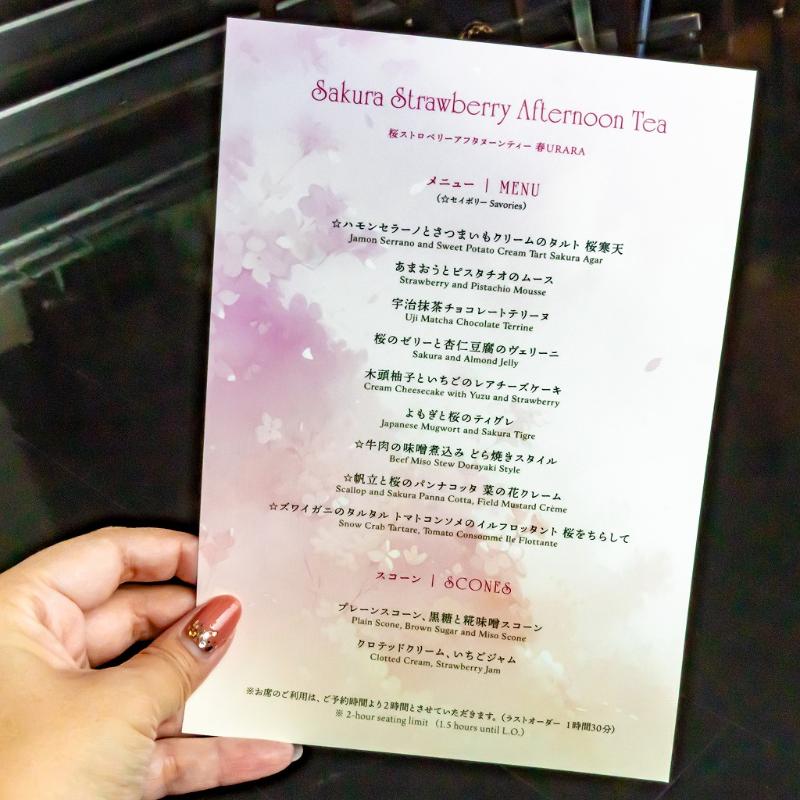 Sakura Strawberry Afternoon Tea
桜ストロベリーアフタヌーンティー 春URARA
メニュー | MENU
(☆セイボリー Savories)
☆ハモンセラーノとさつまいもクリームのタルト 桜寒天
Jamon Serrano and Sweet Potato Cream Tart Sakura Agar
あまおうとピスタチオのムース
Strawberry and Pistachio Mousse
宇治抹茶チョコレートテリーヌ
Uji Matcha Chocolate Terrine
桜のゼリーと杏仁豆腐のヴェリーニ
Sakura and Almond Jelly
木頭柚子といちごのレアチーズケーキ
Cream Cheesecake with Yuzu and Strawberry
よもぎと桜のティグレ
Japanese Mugwort and Sakura Tigre
☆牛肉の味噌煮込み どら焼きスタイル
Beef Miso Stew Dorayaki Style
☆帆立と桜のパンナコッタ 菜の花クレーム
Scallop and Sakura Panna Cotta, Field Mustard Crème
☆ズワイガニのタルタル トマトコンソメのイルフロッタント 桜をちらして
Snow Crab Tartare, Tomato Consommé Ile Flottante
スコーン | SCONES
プレーンスコーン、黒糖と糀味噌スコーン
Plain Scone, Brown Sugar and Miso Scone
クロテッドクリーム、いちごジャム
Clotted Cream, Strawberry Jam
※お席のご利用は、ご予約時間より2時間とさせていただきます。(ラストオーダー 1時間30分)
※ 2-hour seating limit (1.5 hours until L.O.)